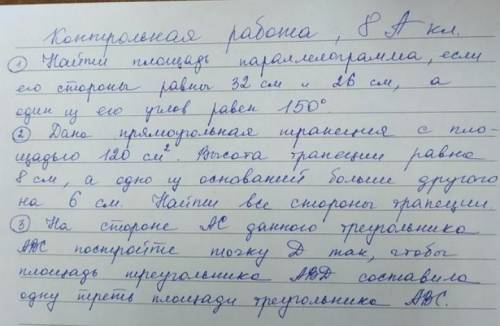 Контрольная работа, 8 А кл.
① Найти площадь параллелограмма, если
его стороны равны 32 см и 26 см, а
один из его углов равен 150°.
② Дана прямоугольная трапеция с пло-
щадью 120 см². Высота трапеции равна
8 см, а одно из оснований больше другого
на 6 см. Найти все стороны трапеции.
③ На стороне АС данного треугольника
АВС постройте точку D так, чтобы
площадь треугольника АВD составила
одну треть площади треугольника АВС.